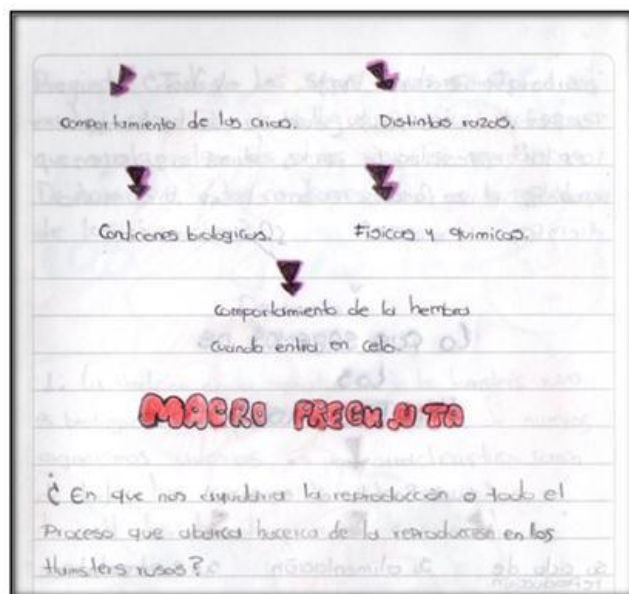 Comportamiento de las crias. Distintas razas.
Condiciones biologicas. Fisicas y quimicas.
Comportamiento de la hembra
cuando entra en celo.
MACRO PREGUNTA
¿ En que nos ayudaria la reproducción o todo el
Proceso que abarca hacerca de la reproducción en los
Hamsters rusos?